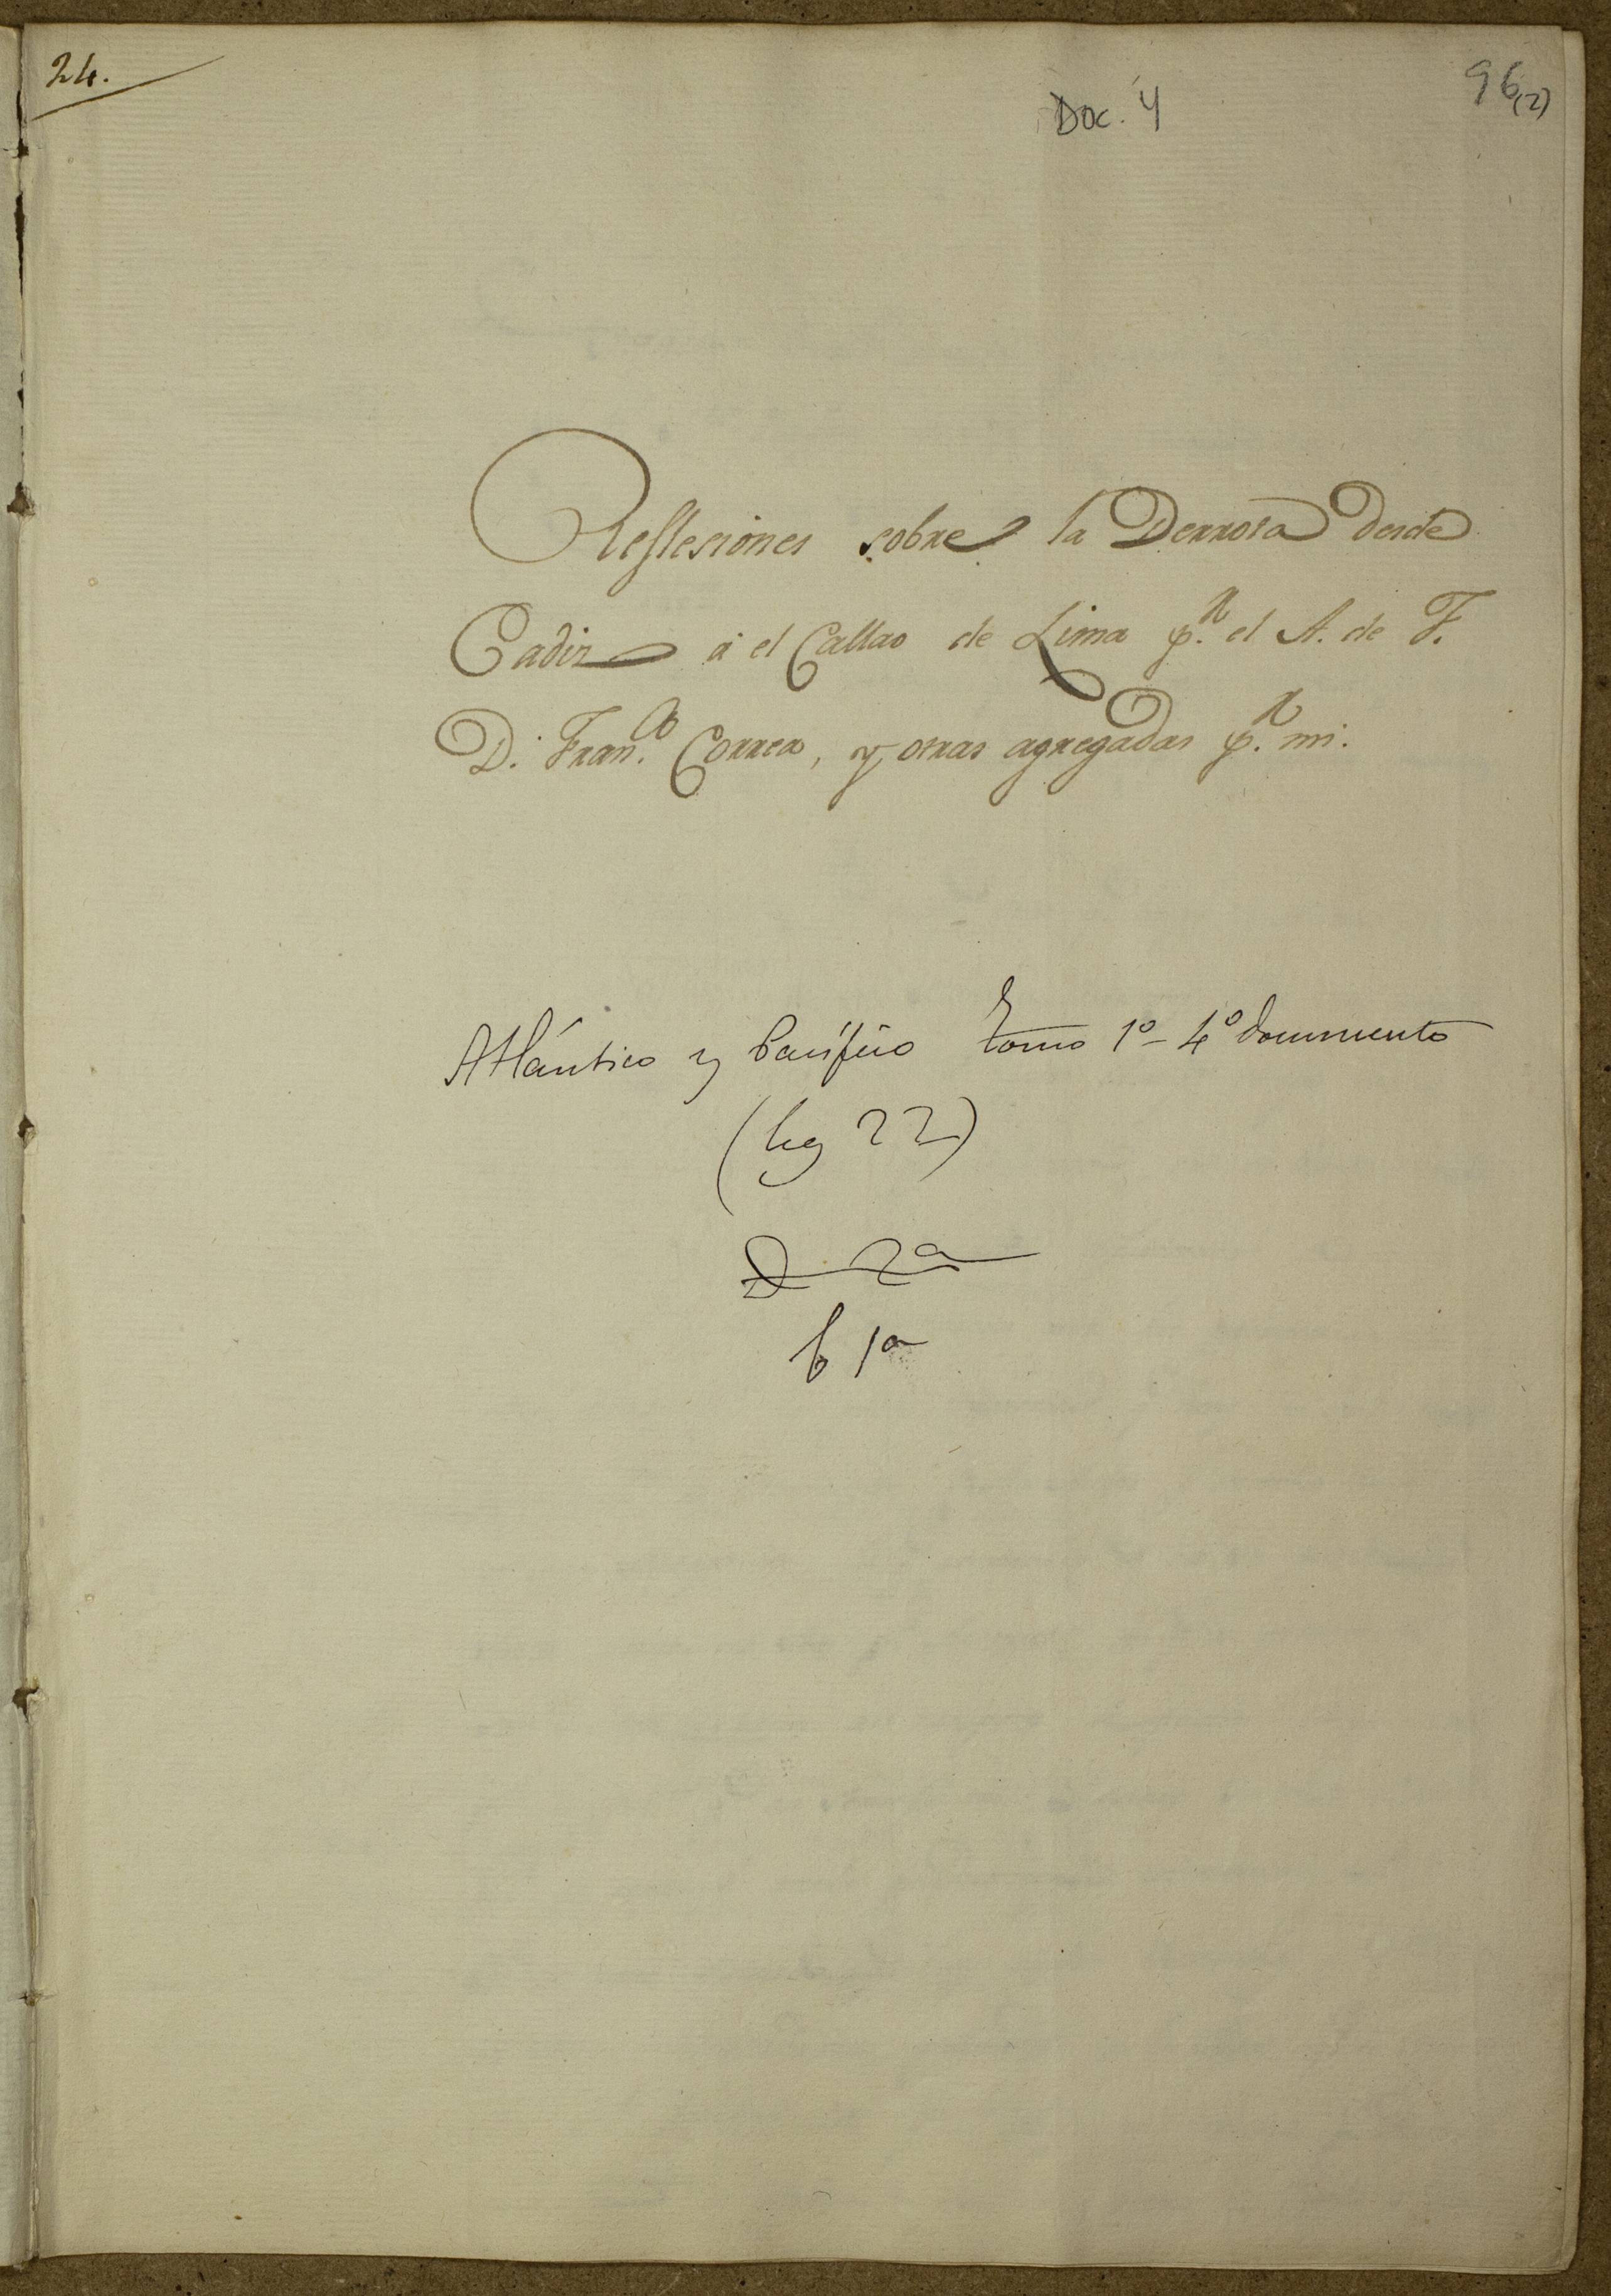 24.
Doc. 4
96(2)
Reflesiones sobre la Derrota desde
Cadiz á el Callao de Lima p.r el A. de F.
D. Fran.co Correa, y otras agregadas p.r mi.
Atlántico y Pacífico tomo 1º - 4º documento
(leg 22)
2ª
b 1ª